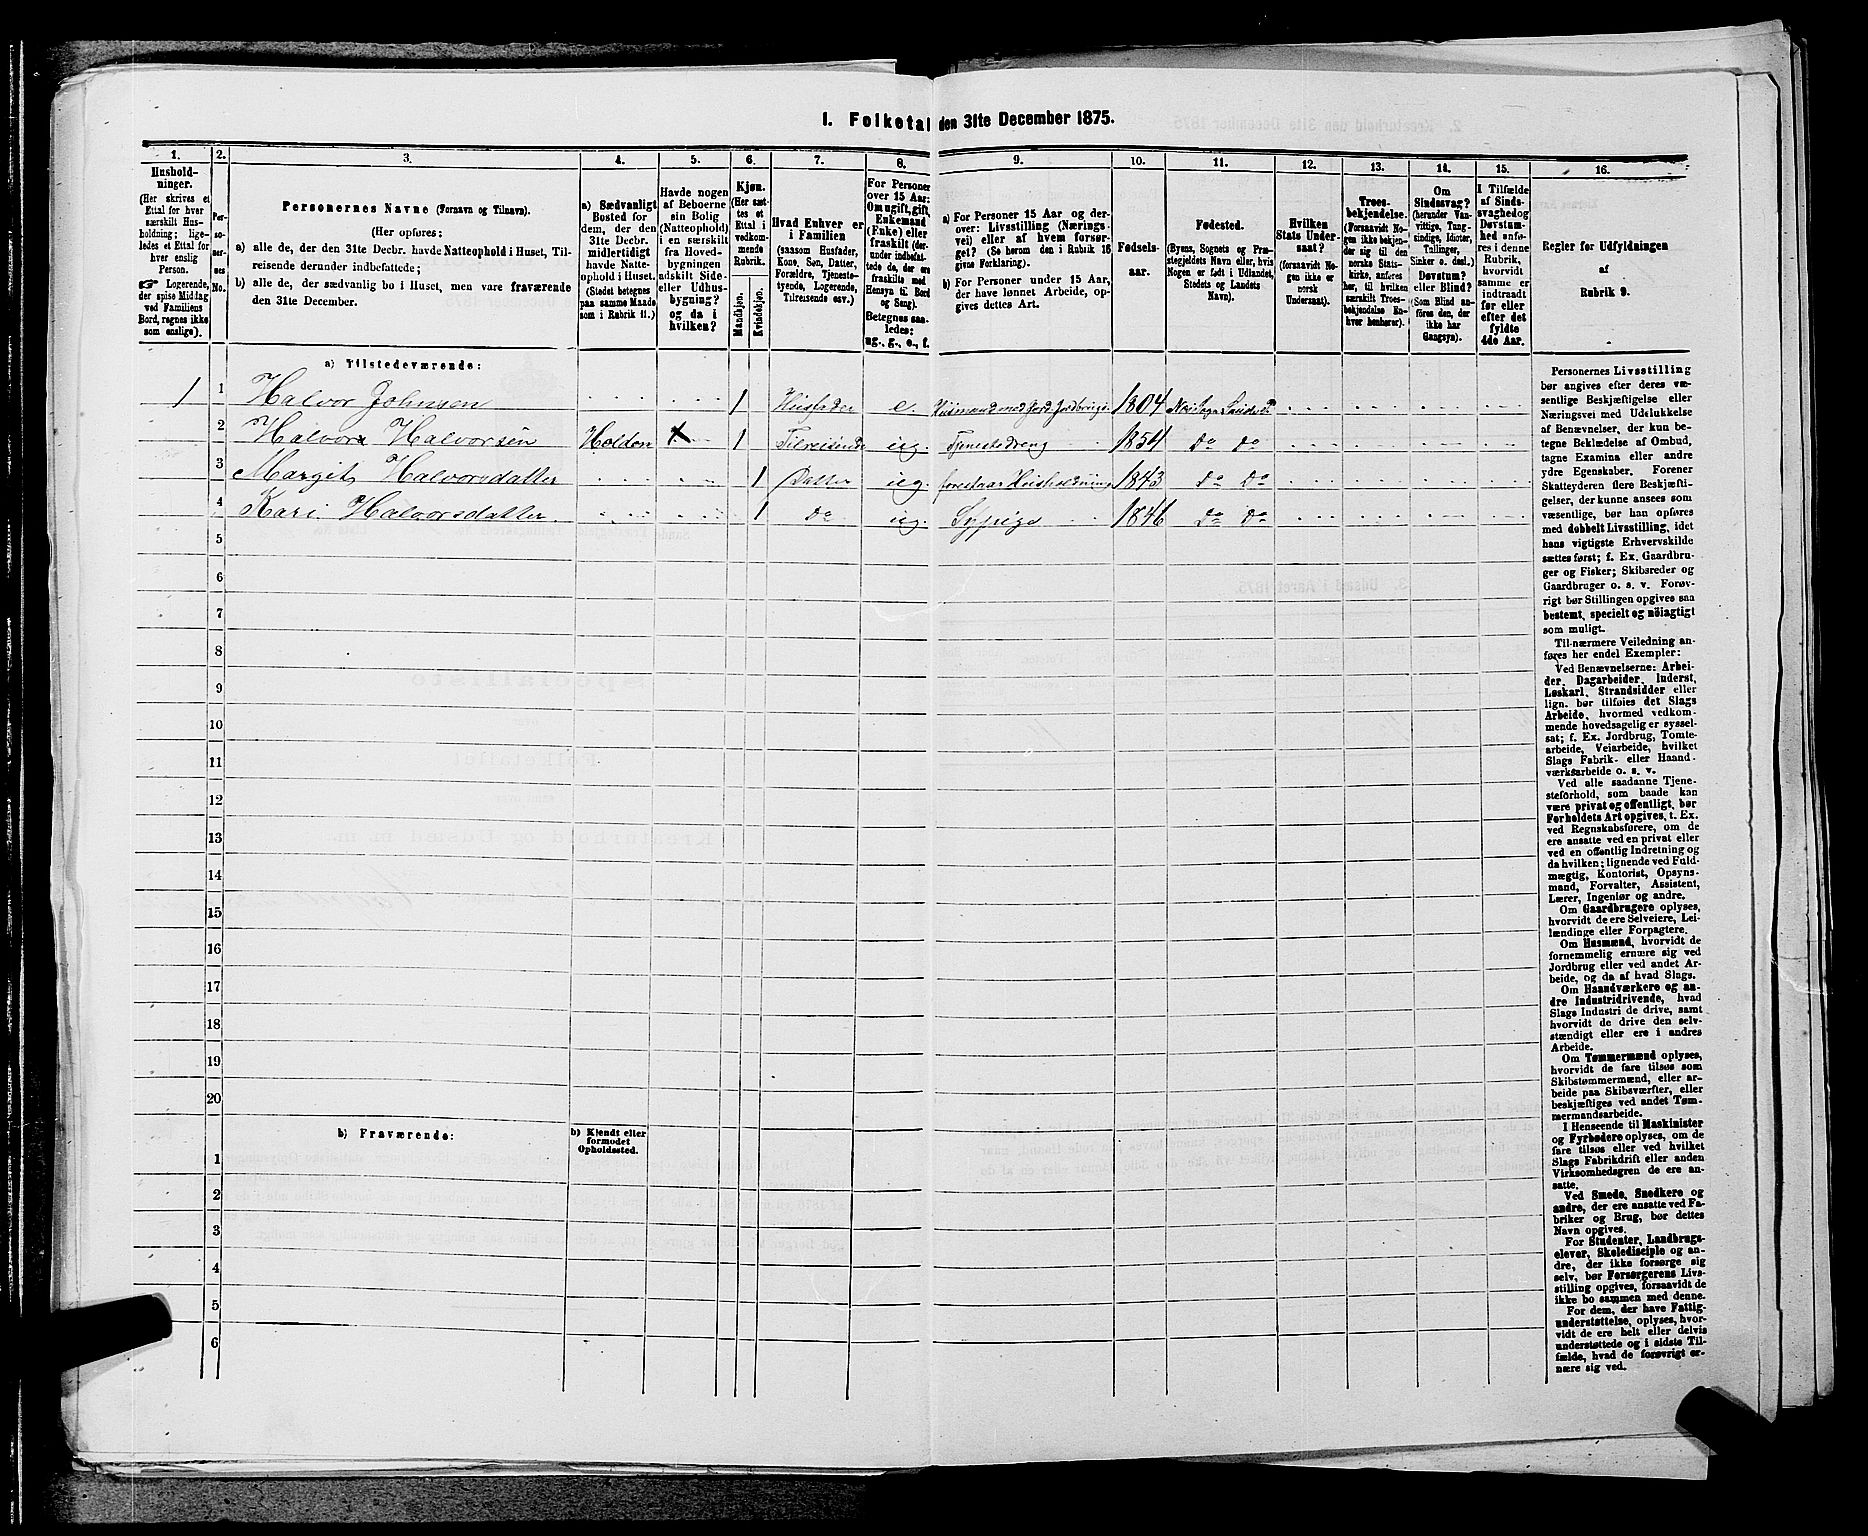 1. Folketal den 31te December 1875.
1. 2. 3. 4. 5. 6. 7. 8. 9. 10. 11. 12. 13. 14. 15. 16.
Hushold-
ninger.
(Her skrives et
Ettal for hver
særskilt Hus-
holdning; lige-
ledes et Ettal for
hver enslig
Person.
☞ Logerende,
der spise Middag
ved Familiens
Bord, regnes ikke
som enslige).
Per-
so-
ner-
nes
No.
Personernes Navne (Fornavn og Tilnavn).
(Her opføres:
a) alle de, der den 31te Decbr. havde Natteophold i Huset, Til-
reisende derunder indbefattede;
b) alle de, der sædvanlig bo i Huset, men vare fraværende
den 31te December.
a) Sædvanligt
Bosted for
dem, der den
31te Decbr.
midlertidigt
havde Natte-
ophold i Huset.
(Stedet betegnes
paa samme Maade
som i Rubrik 11.)
Havde nogen
af Beboerne
sin Bolig
(Natteophold)
i en særskilt
fra Hoved-
bygningen
adskilt Side-
eller Udhus-
bygning?
og da i
hvilken?
Kjøn.
(Her sæt-
tes et
Ettal i
vedkom-
mende
Rubrik.
Mandkjøn.
Kvindekjøn.
Hvad Enhver er
i Familien
(saasom Husfader,
Kone, Søn, Datter,
Forældre, Tjeneste-
tyende, Logerende,
Tilreisende osv.)
For Personer
over 15 Aar:
Om ugift, gift,
Enkemand
(Enke) eller
fraskilt (der-
under indbefat-
tede de, der ere
fraskilte med
Hensyn til Bord
og Seng).
Betegnes saa-
ledes:
ug., g., e., f.
a) For Personer 15 Aar og der-
over: Livsstilling (Nærings-
vei) eller af hvem forsør-
get? (Se herom den i Rubrik 16
givne Forklaring).
b) For Personer under 15 Aar,
der have lønnet Arbeide, op-
gives dettes Art.
Fødsels-
aar.
Fødested.
(Byens, Sognets og Præ-
stegjeldets Navn eller, hvis
Nogen er født i Udlandet,
Stedets og Landets
Navn).
Hvilken
Stats Under-
saat?
(forsaavidt No-
gen ikke er
norsk
Undersaat).
Troes-
bekjendelse.
(Forsaavidt No-
gen ikke bekjen-
der sig til den
norske Stats-
kirke, anføres
her, til hvilken
særskilt Troes-
bekjendelse En-
hver henhører).
Om
Sindssvag?
(herunder Van-
vittige, Tung-
sindige, Idioter,
Tullinger,
Sinker o. desl.)
Døvstum?
eller Blind?
(Som Blind an-
føres den, der
ikke har
Gangsyn).
I Tilfælde
af Sinds-
svaghed og
Døvstum-
hed anfø-
res i denne
Rubrik,
hvorvidt
samme er
indtraadt
før eller
efter det
fyldte
4de Aar.
Regler for Udfyldningen
af
Rubrik 9.
a) Tilstedeværende:
1 1 Halvor Johnsen 1 Husfader e. Husmand med Jord, Jordbrug 1804
2 Halvor Halvorsen Holden x 1 Tilreisende ug. Tjenestedreng 1854 Do Do
3 Margit Halvorsdatter 1 Datter ug. forestaar Husholdning 1843 Do Do
4 Kari Halvorsdatter. 1 Do ug. Sypige 1846 Do Do
5
6
7
8
9
10
11
12
13
14
15
16
17
18
19
20
b) Fraværende:
b) Kjendt eller
formodet
Opholdssted.
1
2
3
4
5
6
Personernes Livsstilling
bør angives efter deres væ-
sentlige Beskjæftigelse eller
Næringsvei med Udelukkelse
af Benævnelser, der kun be-
tegne Beklædelse af Ombud,
tagne Examina eller andre
ydre Egenskaber. Forener
Skatteyderen flere Beskjæfti-
gelser, der kunne ansees som
væsentlige, bør han opføres
med dobbelt Livsstilling, idet
hans vigtigste Erhvervskilde
sættes først; f. Ex. Gaardbru-
ger og Fisker; Skibsreder og
Gaardbruger o. s. v. Forøv-
rigt bør Stillingen opgives saa
bestemt, specielt og nöiagtigt
som muligt.
Til nærmere Veiledning an-
føres her endel Exempler:
Ved Benævnelserne: Arbei-
der, Dagarbeider, Inderst,
Løskarl, Strandsidder eller
lign. bør tilføies det Slags
Arbeide, hvormed vedkom-
mende hovedsagelig er syssel-
sat; f. Ex. Jordbrug, Tomte-
arbeide, Veiarbeide, hvilket
Slags Fabrik- eller Haand-
værksarbeide o. s. v.
Ved alle saadanne Tjene-
steforhold, som baade kan
være privat og offentligt, bør
Forholdets Art opgives, t. Ex.
ved Regnskabsførere, om de
ere ansatte ved en privat eller
ved en offentlig Indretning og
da hvilken; lignende ved Fuld-
mægtig, Kontorist, Opsyns-
mand, Forvalter, Assistent,
Lærer, Ingeniør og andre.
Om Gaardbrugere oplyses,
hvorvidt de ere Selveiere, Lei-
lændinge eller Forpagtere.
Om Husmænd, hvorvidt de
fornemmelig ernære sig ved
Jordbrug eller ved andet Ar-
beide, og da af hvad Slags.
Om Haandværkere og an-
dre Industridrivende, hvad
Slags Industri de drive, samt
hvorvidt de drive den selv-
stændigt eller ere i andres
Arbeide.
Om Tømmermænd oplyses,
hvorvidt de fare tilsøs som
Skibstømmermænd, eller ar-
beide paa Skibsværfter, eller
beskjæftiges ved andet Tøm-
mermandsarbeide.
I Henseende til Maskinister
og Fyrbødere oplyses, om de
fare tilsøs eller ved hvilket
Slags Fabrikdrift eller anden
Virksomhedsgren de ere an-
satte.
Ved Smede, Snedkere og
andre, der ere ansatte ved Fa-
briker og Brug, bør dettes
Navn opgives.
For Studenter, Landbrugs-
elever, Skoledisciple og an-
dre, der ikke forsørge sig
selv, bør Forsørgerens Livs-
stilling opgives, forsaavidt de
ikke bo sammen med denne.
For dem, der have Fattig-
understøttelse, oplyses, hvor-
vidt de ere helt eller delvis
understøttede og i sidste Til-
fælde, hvad de forøvrigt er-
nære sig ved.